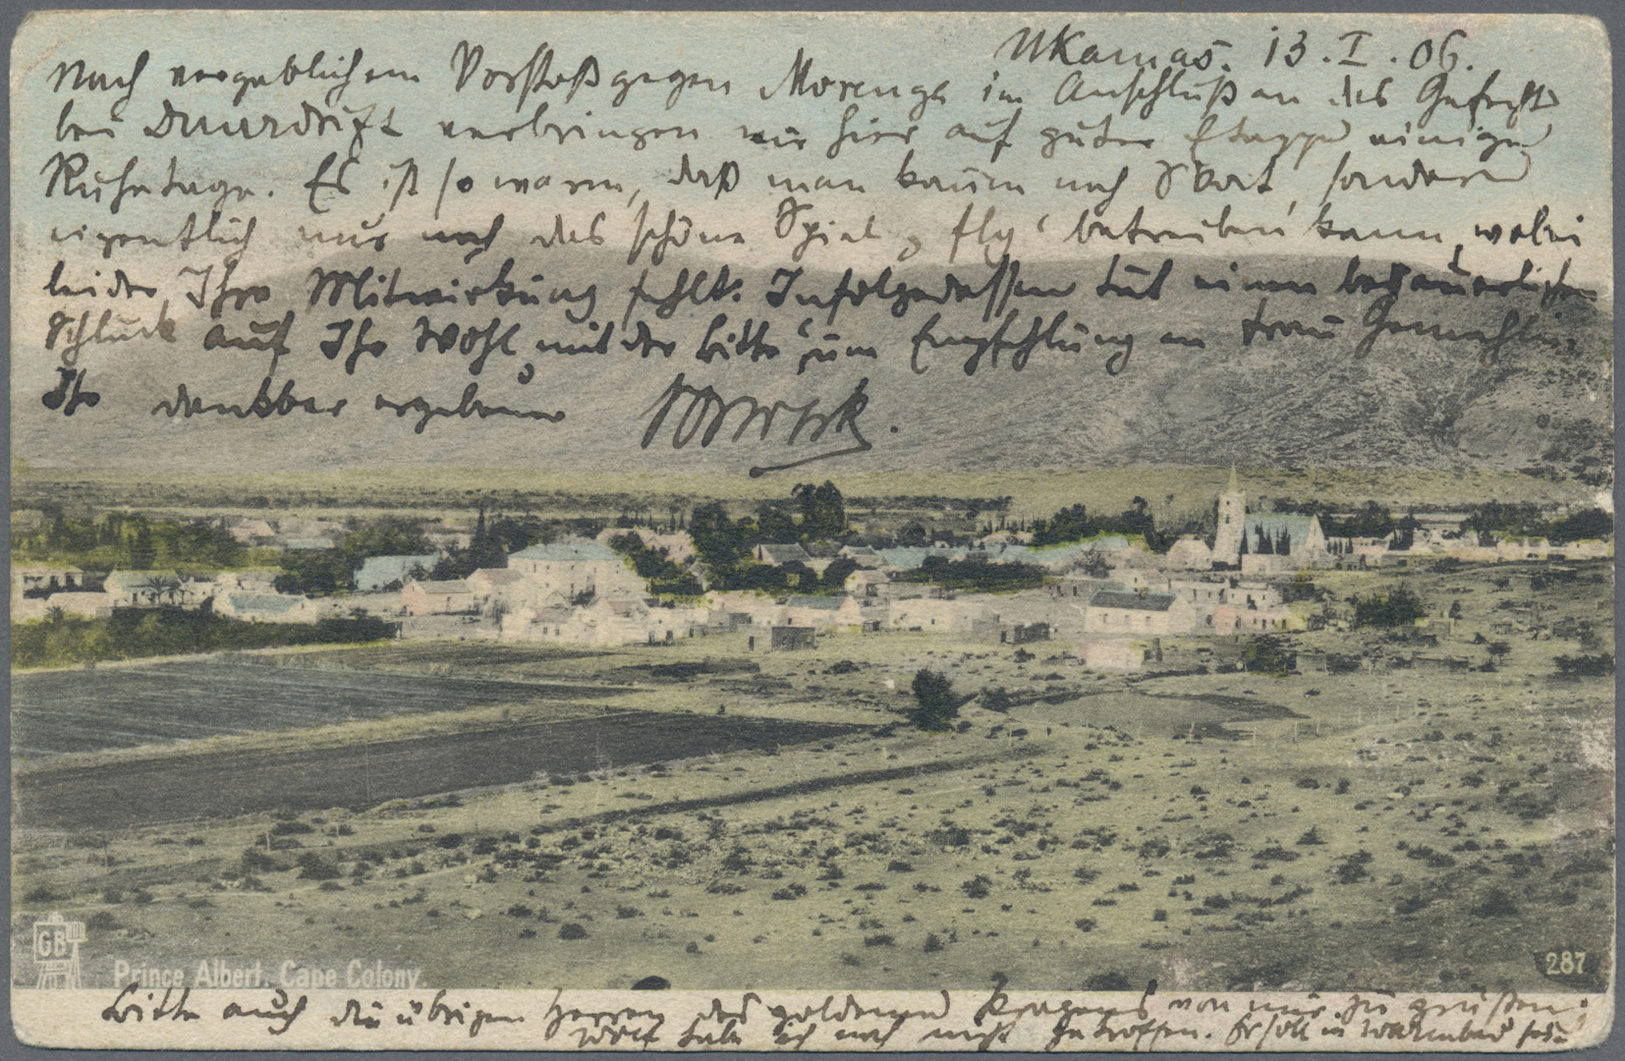 Ukamas. 13.I.06.
Nach vergeblichem Vorstoß gegen Morenga im Anschluß an das Gefecht
bei Duurdrift verbringen wir hier auf guter Etappe einige
Ruhetage. Es ist so warm, daß man kaum noch Skat, sondern
eigentlich nur noch das schöne Spiel "fly" betreiben kann, wobei
leider Ihre Mitwirkung fehlt. Infolgedessen tut einen bedauerlichen
Schluck auf Ihr Wohl mit der Bitte um Empfehlung an Frau Gemahlin
Ihr dankbar ergebener
Prince Albert. Cape Colony.
GB
287
Bitte auch die übrigen Herren des goldenen Kragens von mir zu grüßen.
Wolf habe ich noch nicht getroffen. Er soll in Warmbad sein